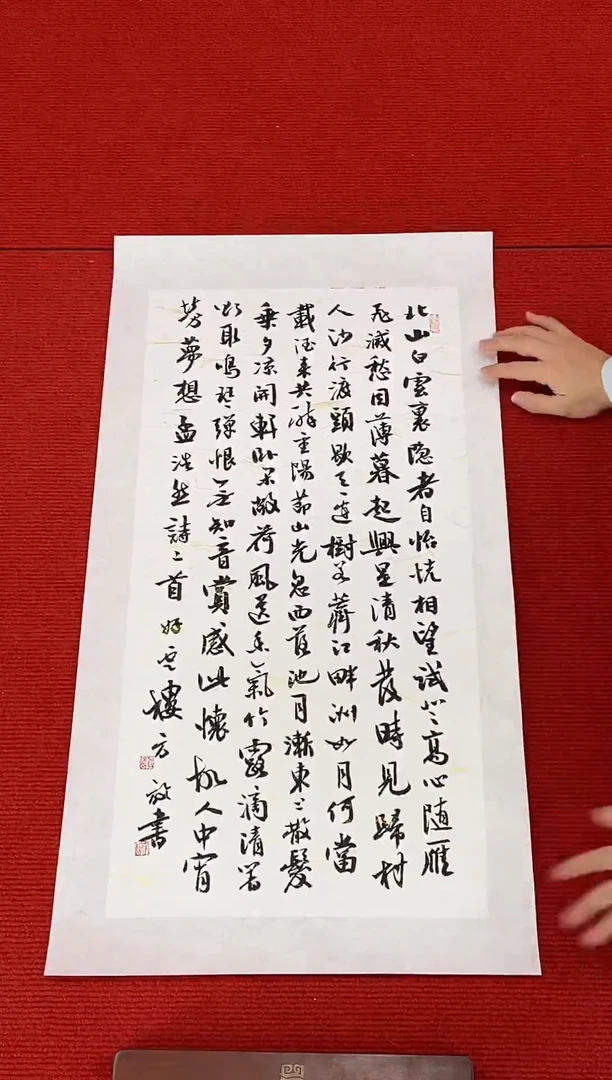 北山白雲裏隐者自怡悦相望試登高心随雁
飛滅愁因薄暮起興是清秋發時見歸村
人沙行渡頭歇天邊樹若薺江畔洲如月何當
載酒來共醉重陽節山光忽西落池月漸東上散髮
乘夕涼開軒卧閑敞荷風送香氣竹露滴清響
欲取鳴琴彈恨無知音賞感此懷故人中宵
勞夢想孟浩然詩二首好雲樓方放書